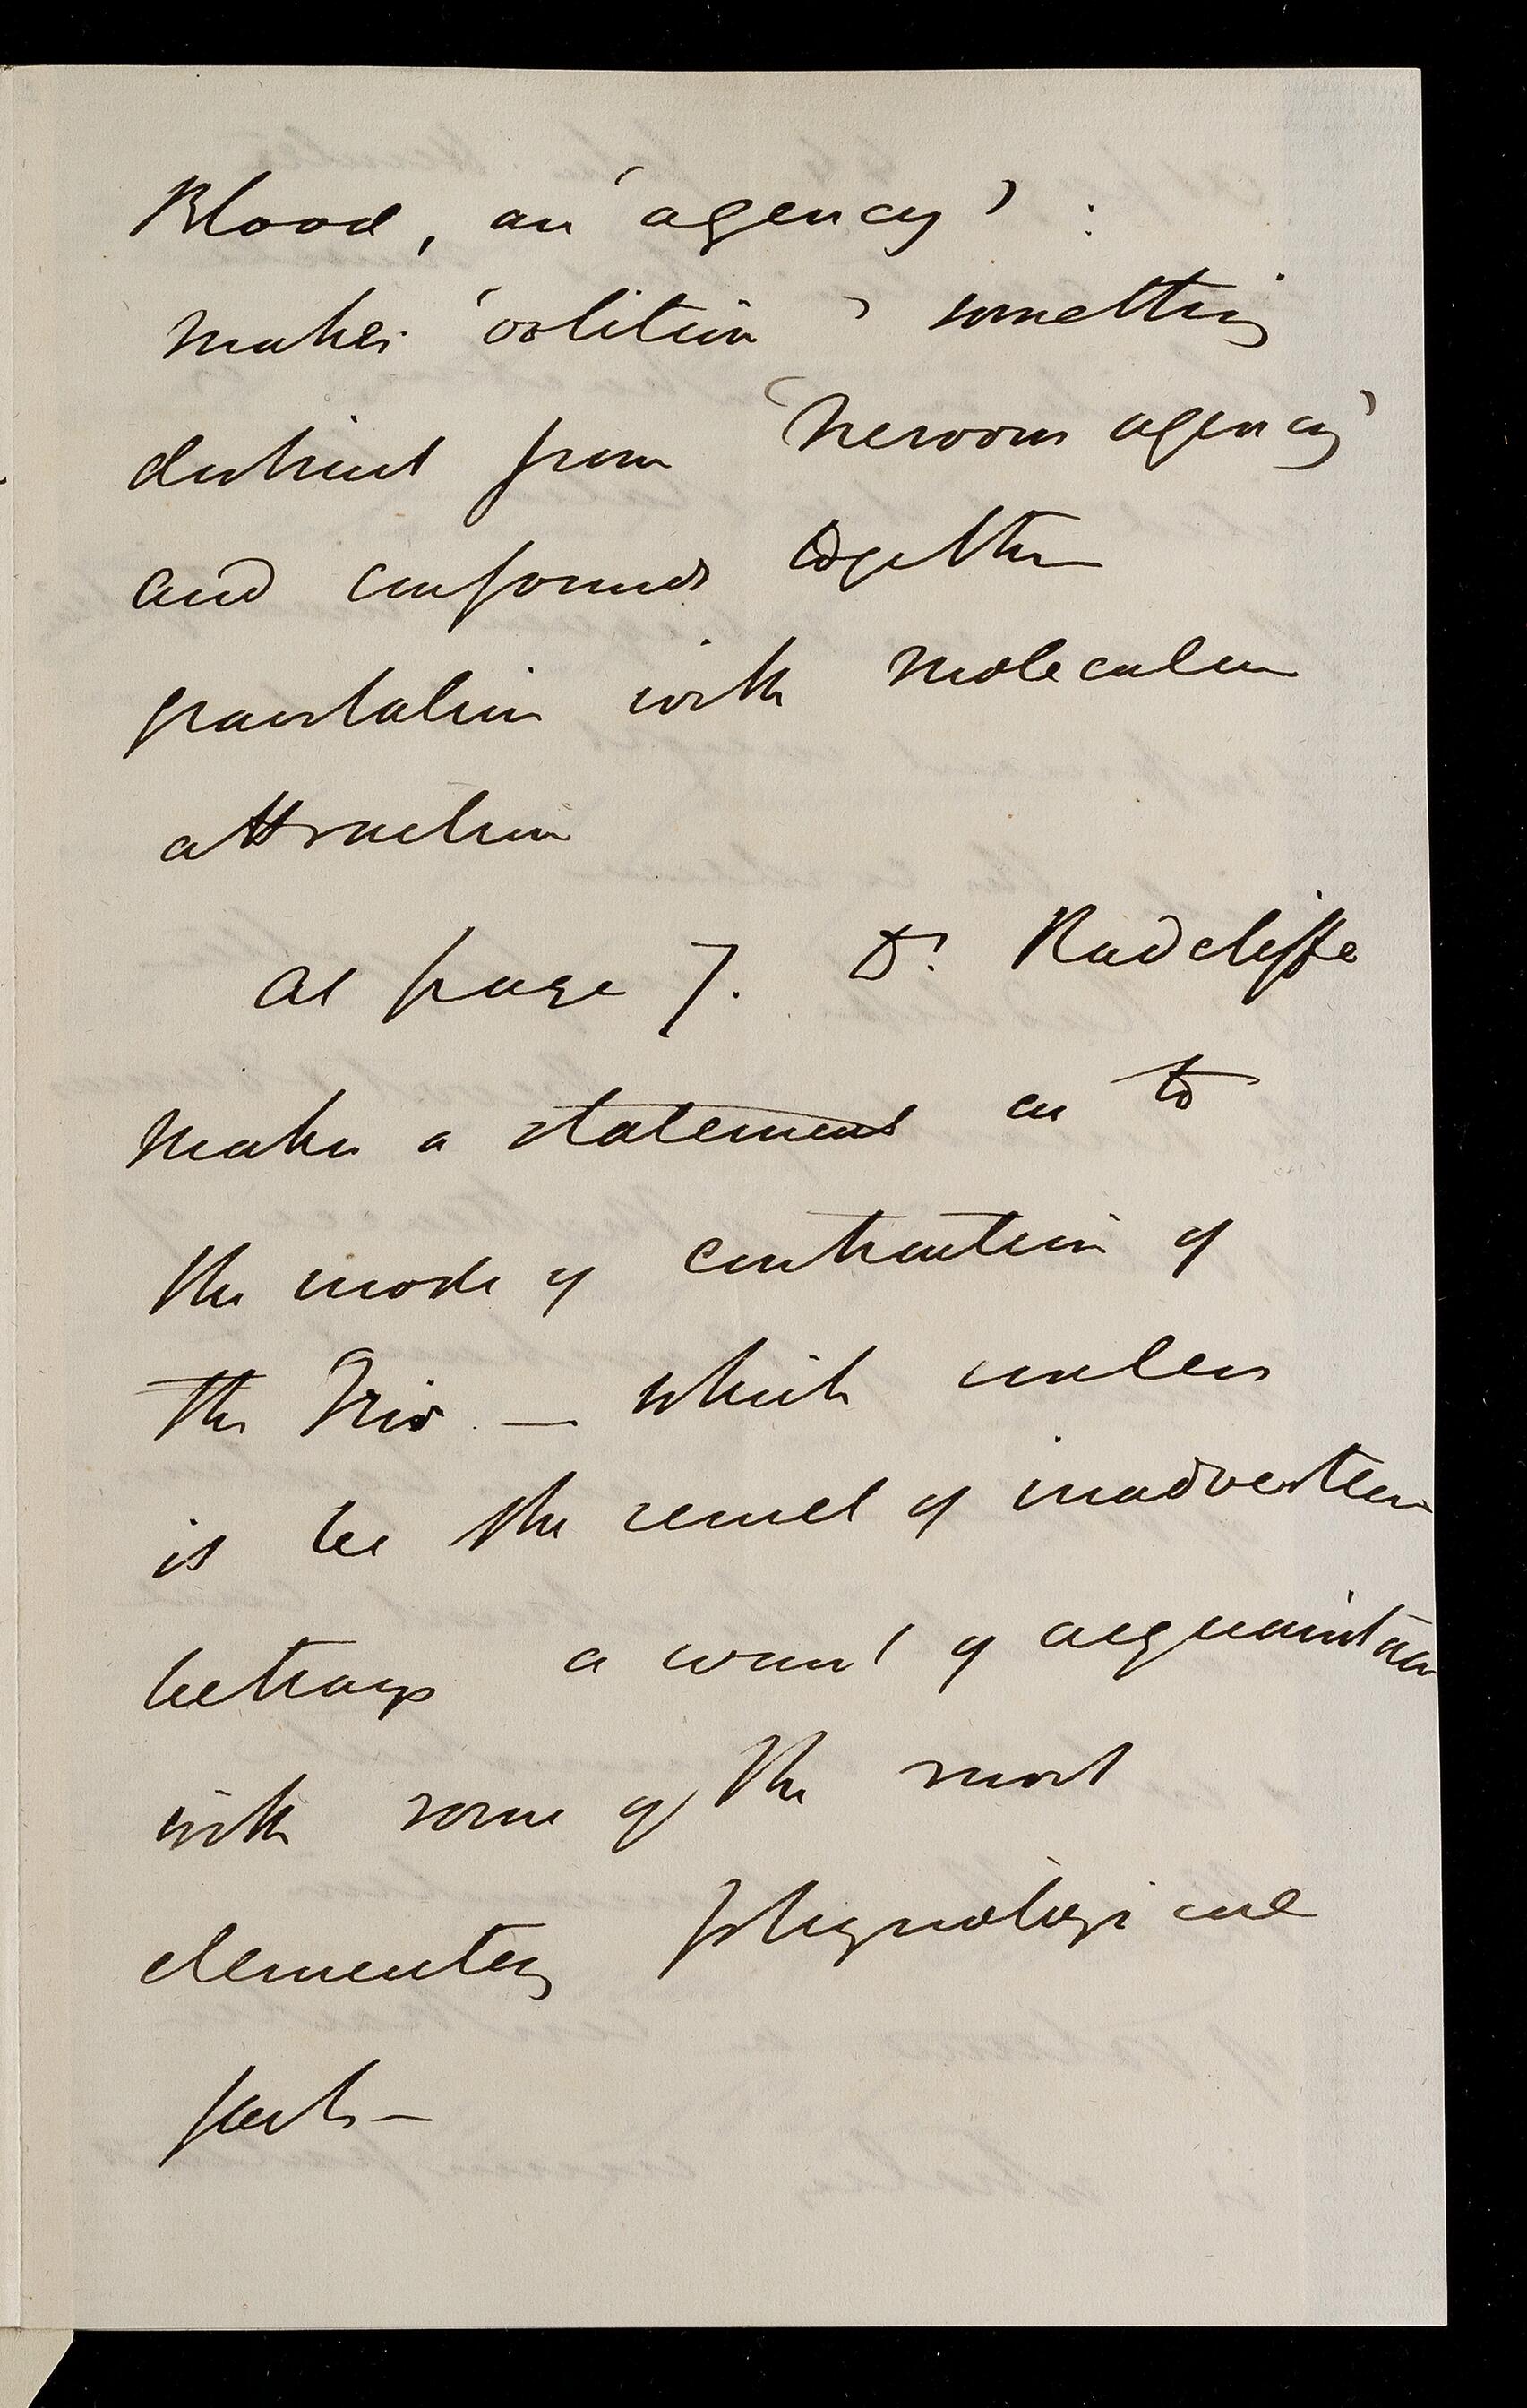 Blood, an 'agency' :
makes 'volition' something
distinct from 'nervous agency'
and confounds together
gravitation with molecular
attraction
At page 7. Dr. Radcliffe
makes a statement as to
the mode of contraction of
the Iris — which unless
it be the result of inadvertence
betrays a want of acquaintance
with some of the most
elementary physiological
facts —